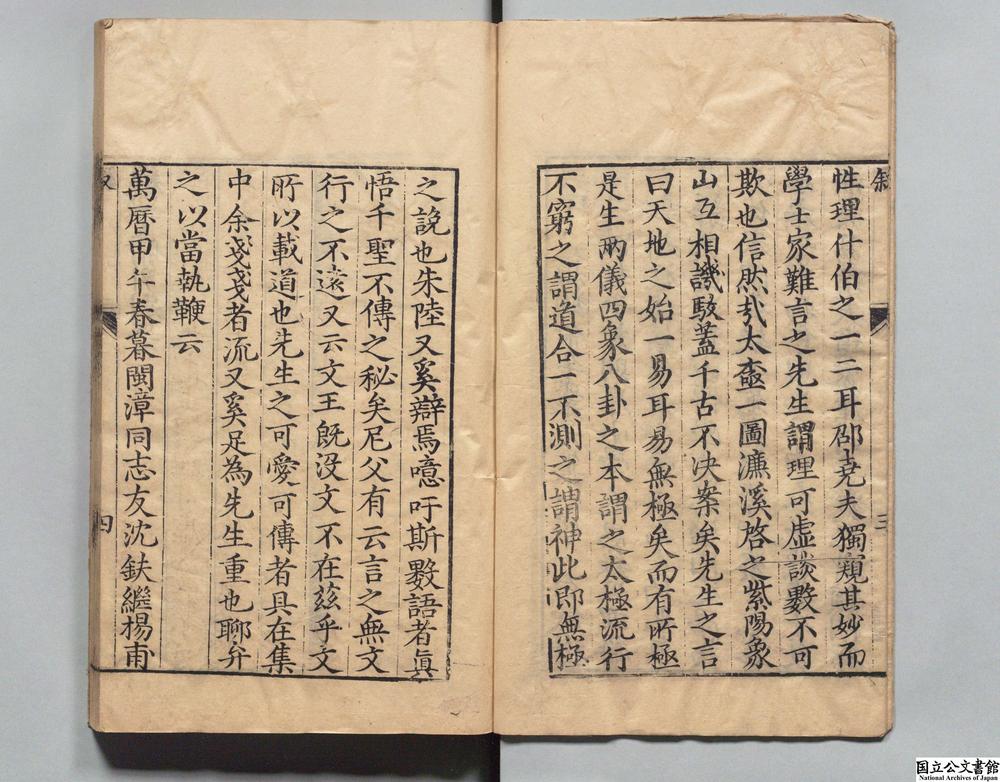 敘
三
性理什伯之一二耳邵堯夫獨窺其妙而
學士家難言之先生謂理可虛談數不可
欺也信然哉太極一圖濂溪啓之紫陽象
山互相譏駁蓋千古不决案矣先生之言
曰天地之始一易耳易無極矣而有所極
是生兩儀四象八卦之本謂之太極流行
不窮之謂道合一不測之謂神此即無極
之說也朱陸又奚辯焉噫吁斯數語者眞
悟千聖不傳之秘矣尼父有云言之無文
行之不遠又云文王既沒文不在茲乎文
所以載道也先生之可愛可傳者具在集
中余戔戔者流又奚足為先生重也聊弁
之以當執鞭云
萬曆甲午春暮閩漳同志友沈鈇繼楊甫
四
国立公文書館
National Archives of Japan